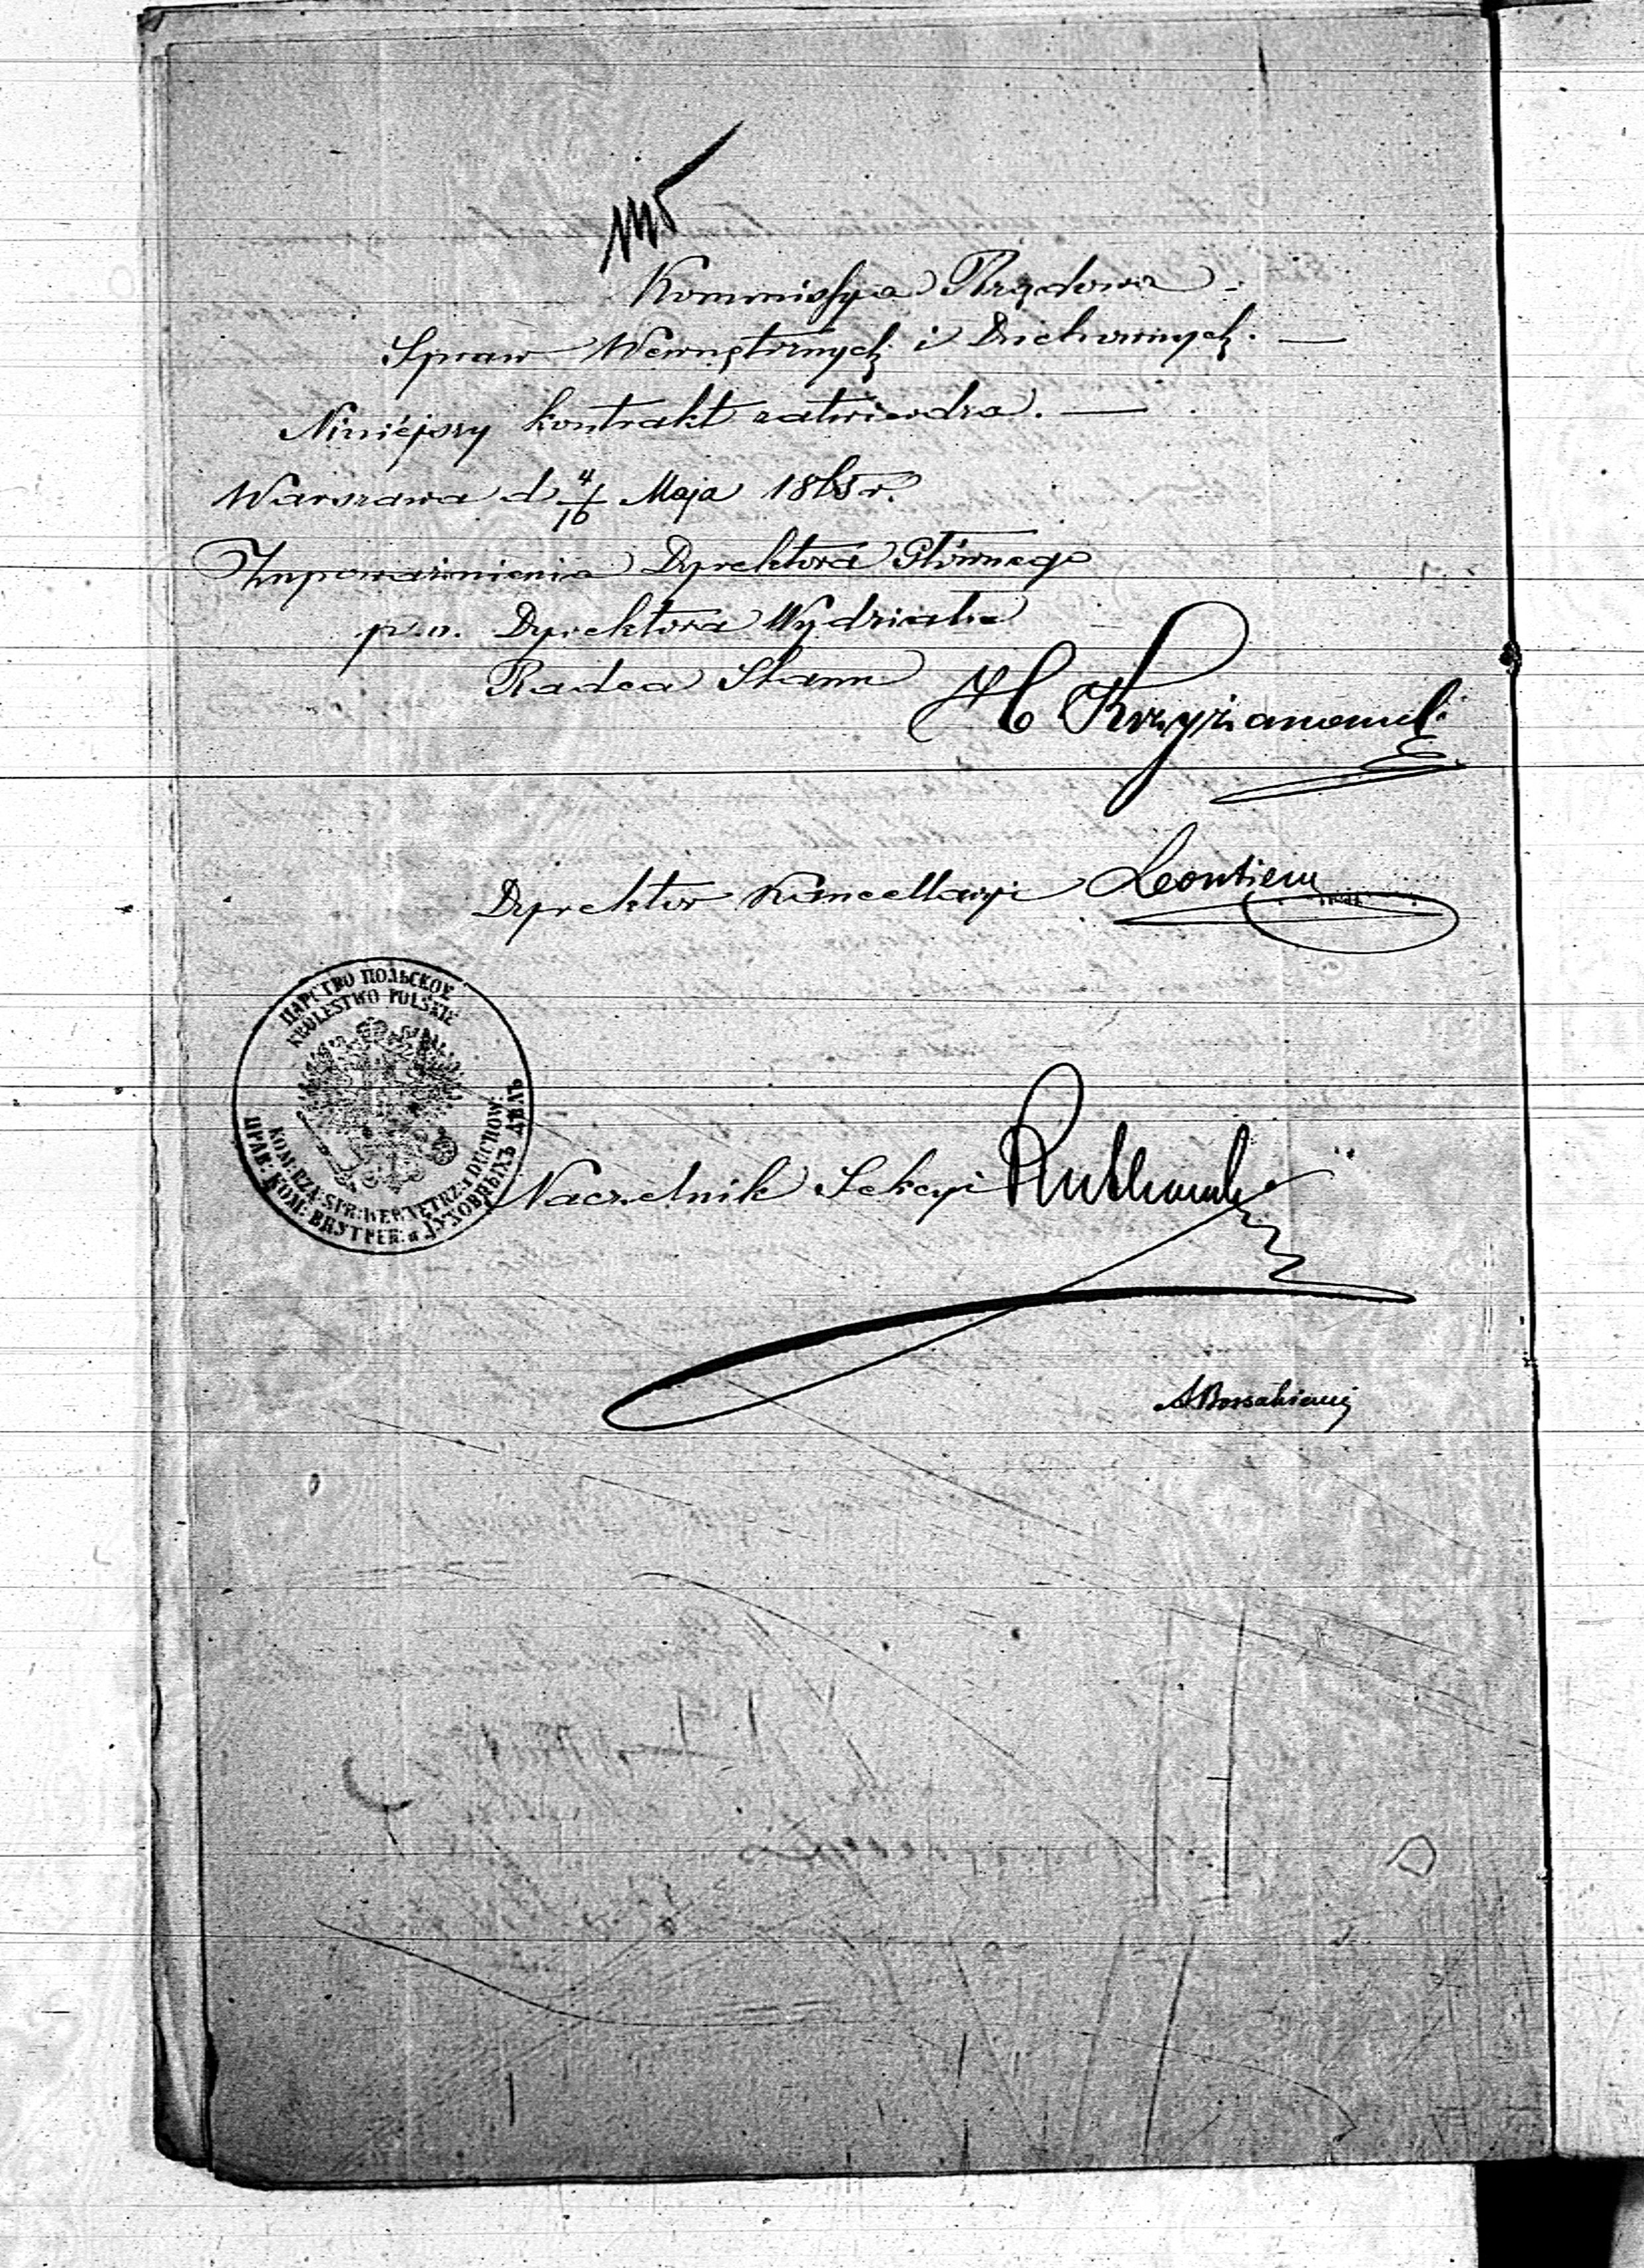 Kommissya Rządowa
Spraw Wewnętrznych i Duchownych. —
Niniéjszy kontrakt zatwierdza. —
Warszawa d 4/16 Maja 1865 r.
Z upoważnienia Dyrektora Głównego
p.o. Dyrektora Wydziału
Radca Stanu H Krzyżanowski
Dyrektor Kancellaryi Leontiew
ЦАРСТВО ПОЛЬСКОЕ
KRÓLESTWO POLSKIE
KOM: RZĄ: SPR: WEWNĘTRZ: I DUCHOW:
ПРАВ: КОМ: ВНУТРЕН: и ДУХОВНЫХЪ ДѢЛЪ
Naczelnik Sekcyi Rutkowski